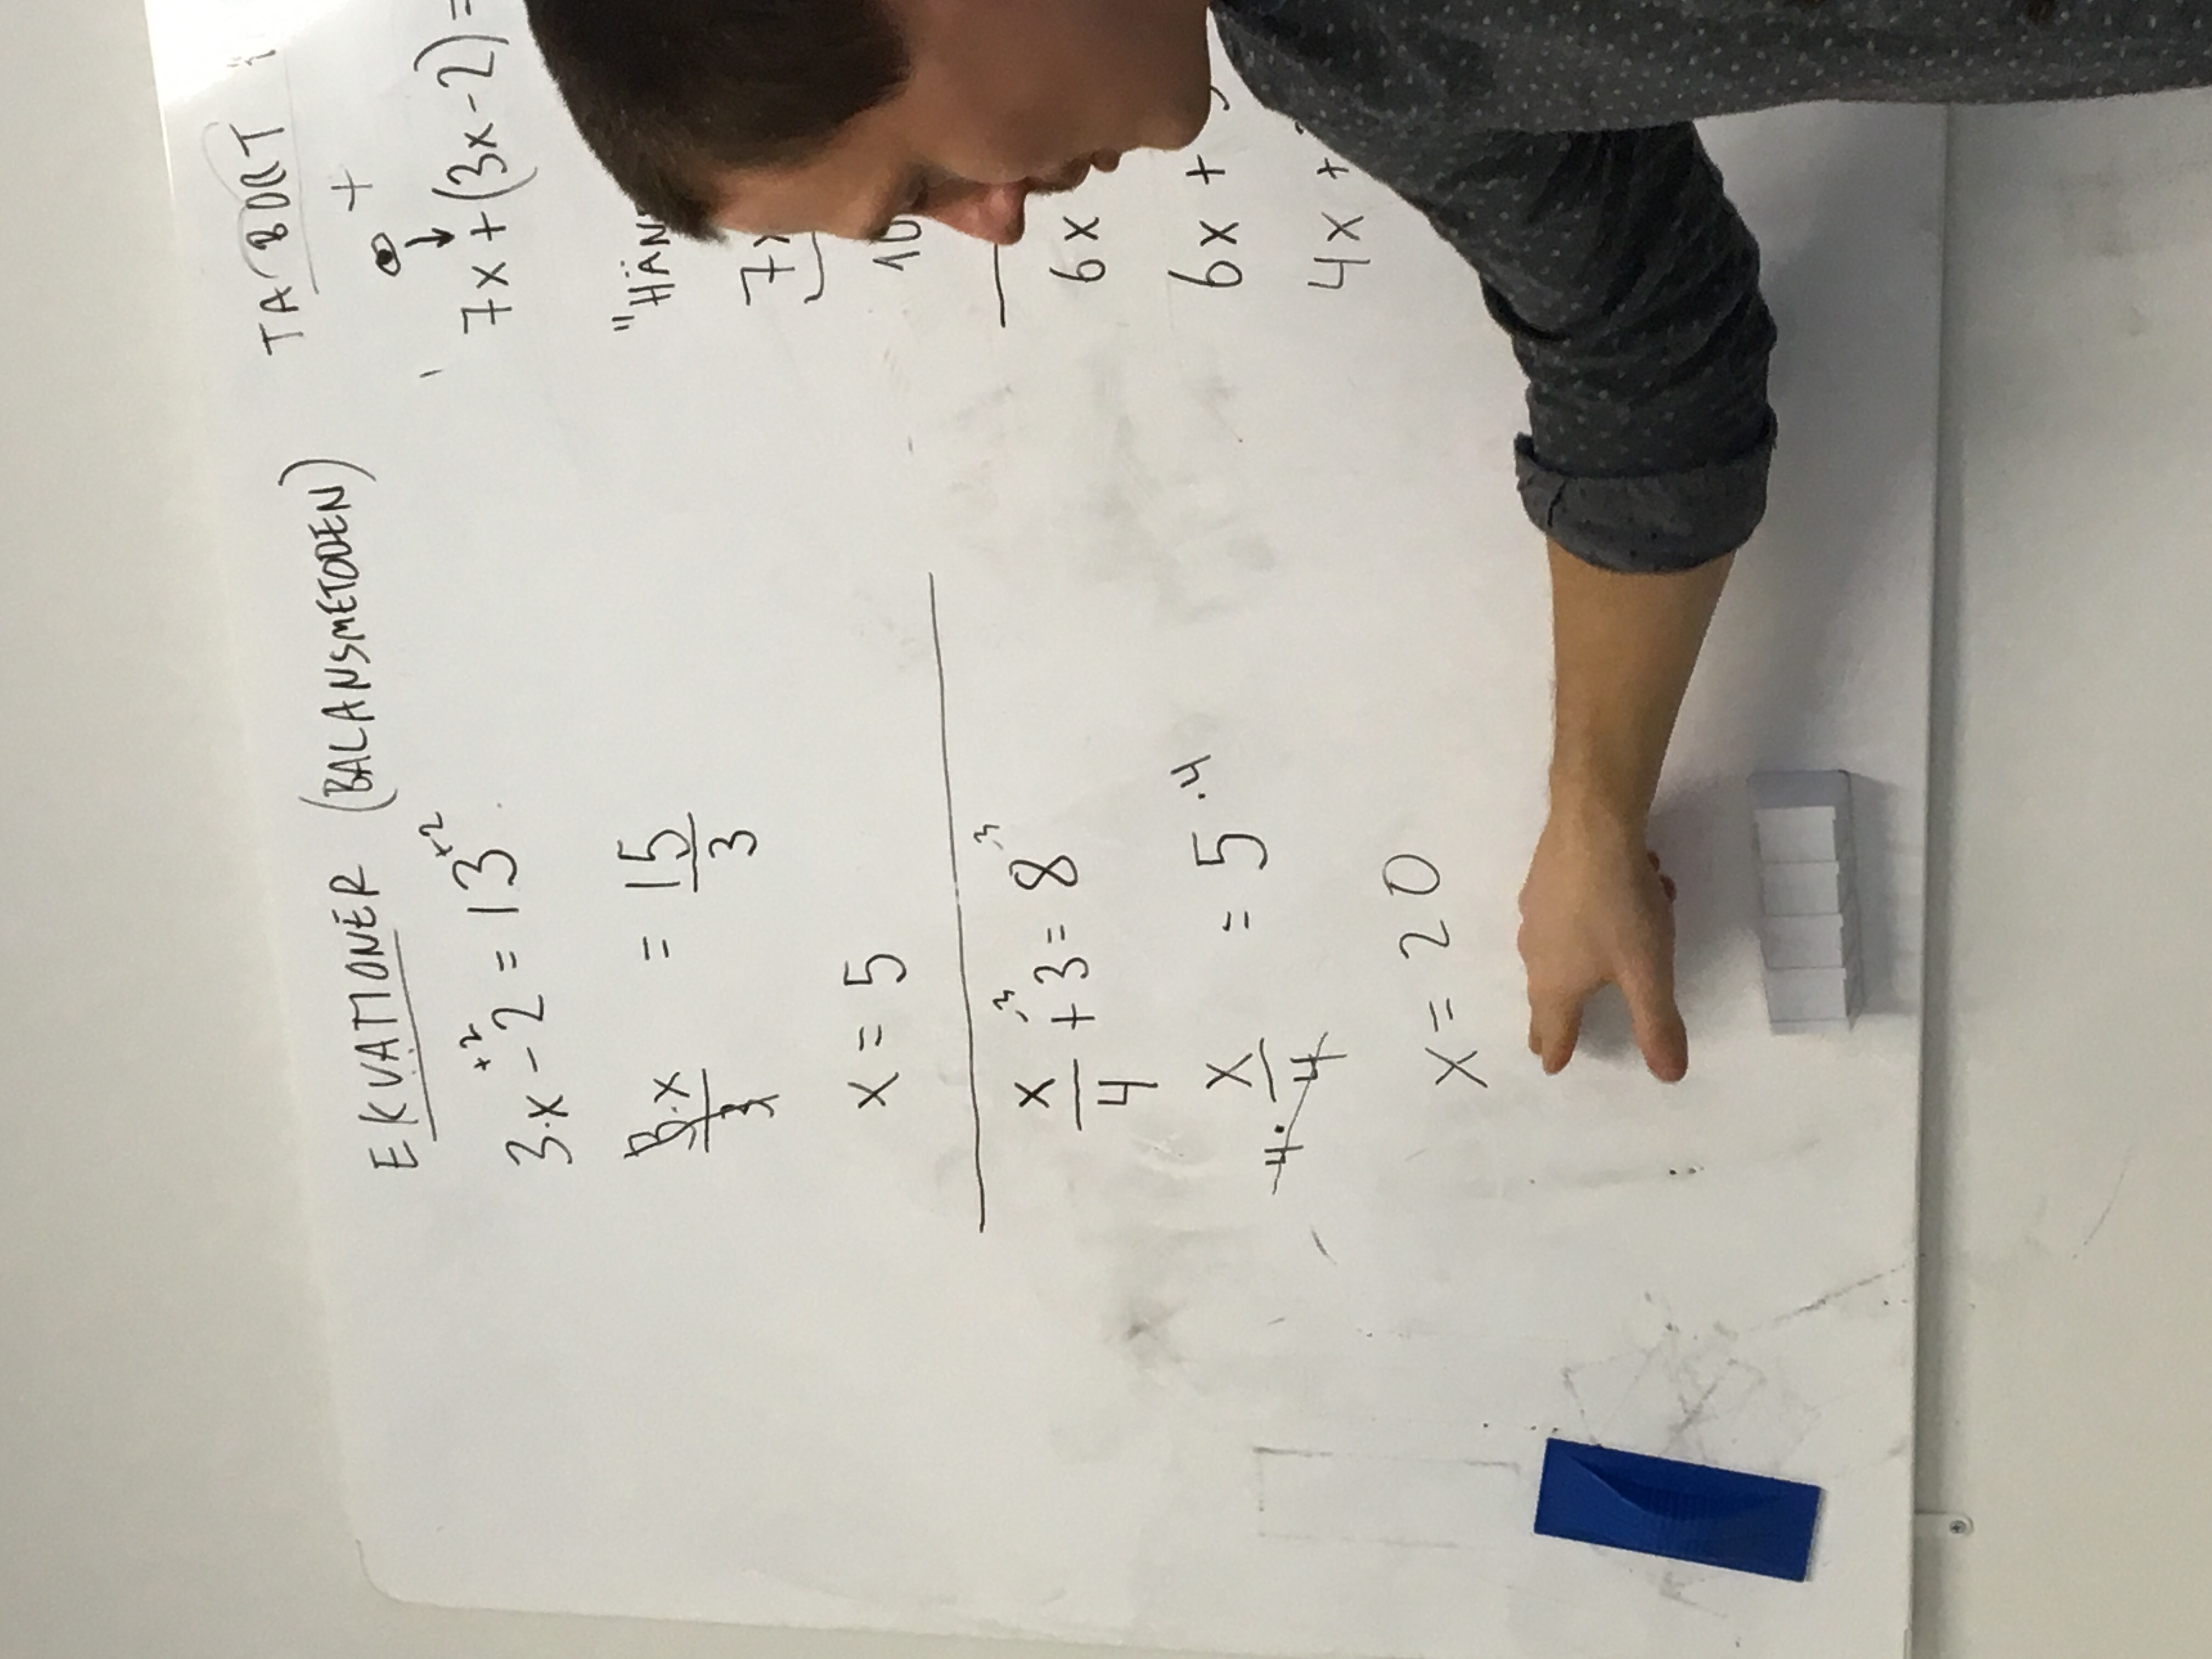 EKVATIONER (BALANSMETODEN)
3·x -2 +2 = 13 +2
3·x/3 = 15/3
x = 5
x/4 +3 -3 = 8 -3
4· x/4 = 5 ·4
x = 20
TA BORT
+
7x+(3x-2)=
"HÄN
7x
10
6x
6x +
4x +